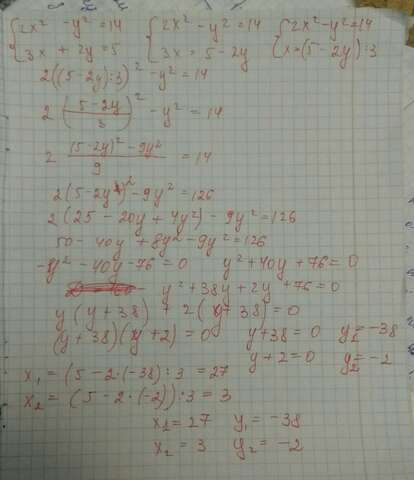 {2x² - y² = 14 {2x² - y² = 14 {2x² - y² = 14
{3x + 2y = 5 {3x = 5 - 2y {x = (5 - 2y) : 3
2((5 - 2y) : 3)² - y² = 14
2 ((5 - 2y)/3)² - y² = 14
2 ((5 - 2y)² - 9y²)/9 = 14
2(5 - 2y)² - 9y² = 126
2(25 - 20y + 4y²) - 9y² = 126
50 - 40y + 8y² - 9y² = 126
-y² - 40y - 76 = 0 y² + 40y + 76 = 0
y² + 38y + 2y + 76 = 0
y(y + 38) + 2(y + 38) = 0
(y + 38)(y + 2) = 0 y + 38 = 0 y₁ = -38
y + 2 = 0 y₂ = -2
x₁ = (5 - 2·(-38) : 3 = 27
x₂ = (5 - 2·(-2)) : 3 = 3
x₁ = 27 y₁ = -38
x₂ = 3 y₂ = -2